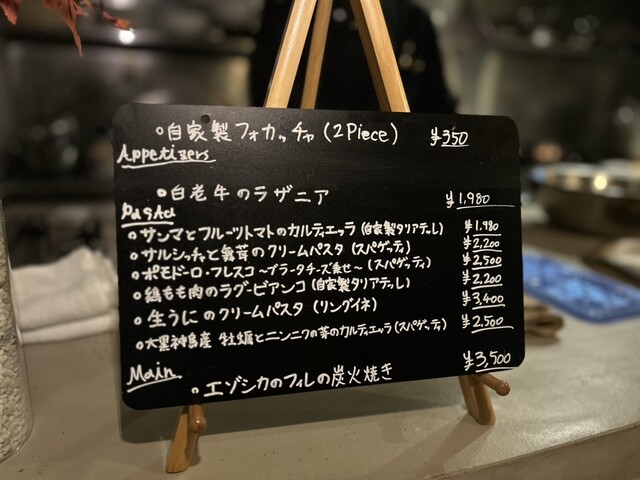 ○自家製フォカッチャ(2Piece) ¥350
Appetizers
○白老牛のラザニア ¥1,980
Pasta
○サンマとフルーツトマトのカルティエッラ(自家製タリアテッレ) ¥1,980
○サルシッチャと義茸のクリームパスタ(スパゲッティ) ¥2,200
○ポモドーロ・フレスコ〜ブラータチーズ乗せ〜(スパゲッティ) ¥2,500
○鶏もも肉のラグービアンコ(自家製タリアテッレ) ¥2,200
○生うにのクリームパスタ(リングイネ) ¥3,400
○大黒神島産 牡蠣とニンニクの芽のカルティエッラ(スパゲッティ) ¥2,500
Main
○エゾシカのフィレの炭火焼き ¥3,500